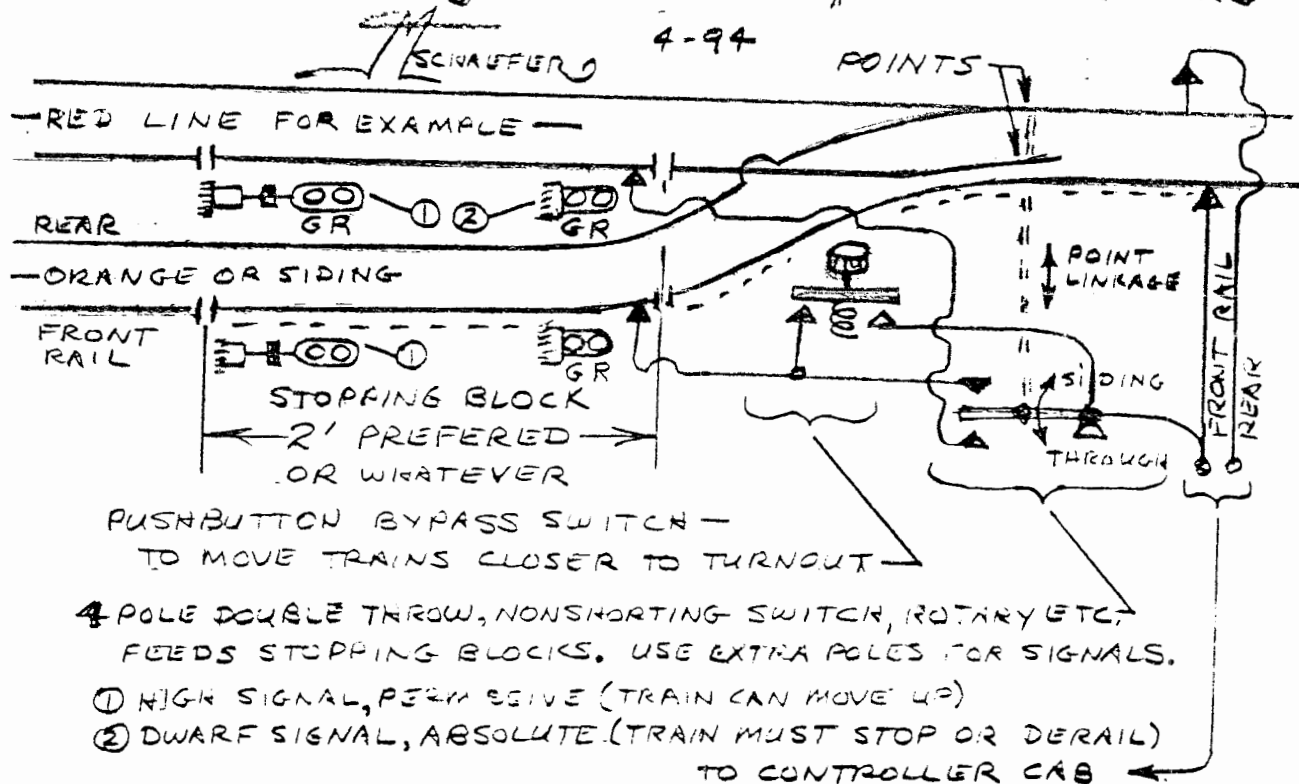 4-94
SCHAEFER
POINTS
RED LINE FOR EXAMPLE
REAR
GR
1
2
GR
ORANGE OR SIDING
FRONT
RAIL
1
GR
POINT
LINKAGE
SIDING
THROUGH
FRONT RAIL
REAR
STOPPING BLOCK
2' PREFERED
OR WHATEVER
PUSHBUTTON BYPASS SWITCH —
TO MOVE TRAINS CLOSER TO TURNOUT
4 POLE DOUBLE THROW, NONSHORTING SWITCH, ROTARY ETC,
FEEDS STOPPING BLOCKS. USE EXTRA POLES FOR SIGNALS.
① HIGH SIGNAL, PERMSEIVE (TRAIN CAN MOVE UP)
② DWARF SIGNAL, ABSOLUTE. (TRAIN MUST STOP OR DERAIL)
TO CONTROLLER CAB